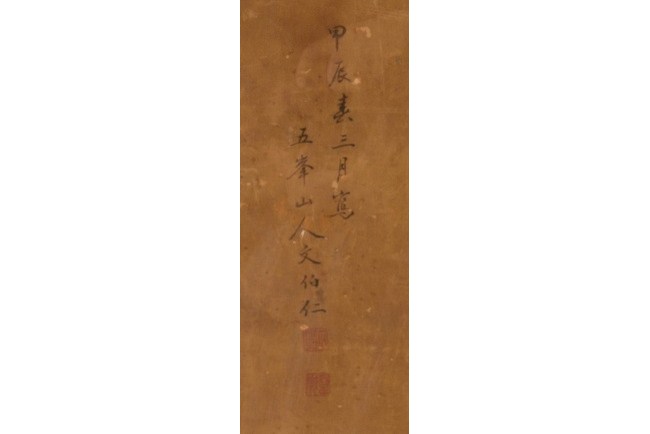 甲辰春三月寫
五峯山人文伯仁